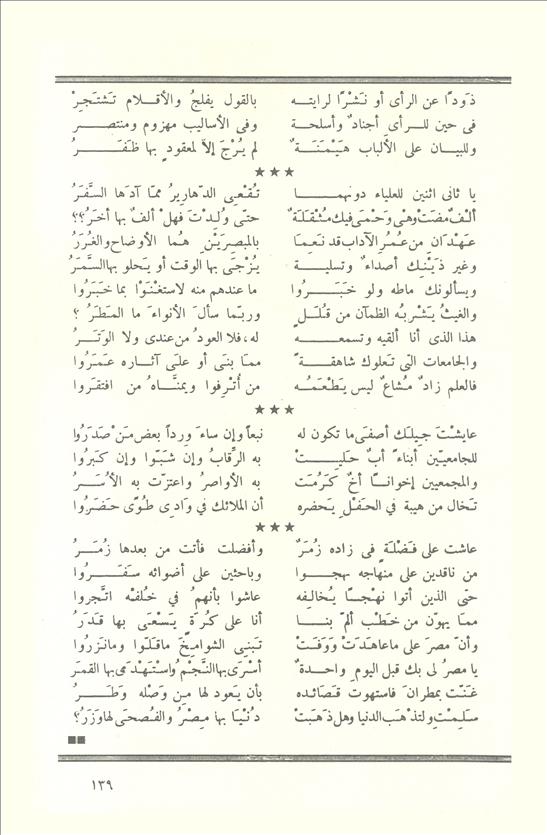 ذَودًا عن الرأى أو نَشْرًا لرايته بالقول يفلجُ والأقلام تَشتَجِرُ
فى حين للرأى أجنادٌ وأسلحة وفى الأساليب مهزوم ومنتصر
وللبيان على الألباب هَيْمَنَةٌ لم يُرْجَ إلاَّ لمعقودٍ بها ظَفَرُ
★★★
يا ثانى اثنين للعلياء دونهما تُقْعِى الدّهاريرُ ممّا آدَها السَّفَرُ
ألفٌ مضَتْ وهْى وَحْمَى فيك مُثْقَلَةٌ حتّى وُلِدْتَ فهلْ ألفٌ بها أُخَرُ؟؟
عَهْدَان من عُمُرِ الآداب قد نَعِمَا بالمبصِرَيْنِ هُما الأوضاح والغُرَرُ
وغير ذَيْنك أصداءٌ وتسلية يُزْجَى بها الوقت أو يَحلو بها السَّمَرُ
ويسألونك ماطه ولو خَبَرُوا ما عندهم منه لاستغْنَوْا بما خَبَرُوا
والغيثُ يَشْربُه الظمآن من قُلَلٍ وربّما سألَ الأنواءَ ما المَطَرُ ؟
هذا الذى أنا ألقيه وتسمعه له، فلا العودُ من عندى ولا الوَتَرُ
والجامعات التى تَعلوك شاهقةً ممّا بنَى أو علَى آثاره عَمَرُوا
فالعلم زادٌ مُشاعٌ ليس يَطْعَمُه من أُتْرِفوا ويمنَّاه من افتقَروا
★★★
عايشْتَ جيلَك أصفَى ما تكون له نبعاً وإن ساءَ وِرداً بعض مَنْ صَدَرُوا
للجامعيّين أبناءً أبٌ حليتْ به الرِّقابُ وإن شَبّوا وإن كَبرُوا
والمجمعيين إخوانًا أخٌ كَرُمَت به الأواصرُ واعتزّت به الأُسَرُ
تَخال من هيبة في الحَفْلِ يَحضره أن الملائك في وَادِى طُوًى حَضَرُوا
★★★
عاشت على فَضْلَةٍ فى زاده زُمَرٌ وأفضلت فأتت من بعدها زُمَرُ
من ناقدين على منهاجه نهجوا وباحثين على أضوائه سَفَرُوا
حتّى الذين أتوا نهْجًا يُخالِفه عاشوا بأنهمُ في خُلْفِه اتَّجروا
ممّا يهوّن من خَطْبٍ ألمّ بنا أنا على كُرَةٍ يَسْعَى بها قَدَرُ
وأنّ مصرَ على ما عاهَدَتْ وَوَفَتْ تَبنِى الشوامِخَ ما قلّوا وما نَزُروا
يا مصرُ لى بك قبل اليوم واحدةٌ أسْرَى بها النَّجْمُ واستَهْدَى بها القمَرُ
غَنَّت بمطرانَ فاستهوت قصَائده بأن يَعود لها من وَصْله وَطَرُ
سَلِمْتِ ولتذهَب الدنيا وهل ذهَبَتْ دُنْيَا بها مِصْرُ والفُصحَى لها وَزَرُ؟
١٣٩